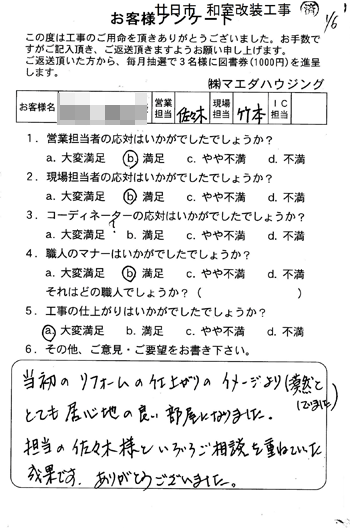 廿日市 和室改装工事 済 1/6
お客様アンケート
この度は工事のご用命を頂きありがとうございました。お手数で
すがご記入頂き、ご返送頂きますようお願い申し上げます。
ご返送頂いた方から、毎月抽選で3名様に図書券(1000円)を進呈
します。
㈱マエダハウジング
お客様名 営業担当 佐々木 現場担当 竹本 IC担当
1．営業担当者の応対はいかがでしたでしょうか？
a. 大変満足 b. 満足 c. やや不満 d. 不満
2．現場担当者の応対はいかがでしたでしょうか？
a. 大変満足 b. 満足 c. やや不満 d. 不満
3．コーディネーターの応対はいかがでしたでしょうか？
?
a. 大変満足 b. 満足 c. やや不満 d. 不満
4．職人のマナーはいかがでしたでしょうか？
a. 大変満足 b. 満足 c. やや不満 d. 不満
それはどの職人でしょうか？（ ）
5．工事の仕上がりはいかがでしたでしょうか？
a. 大変満足 b. 満足 c. やや不満 d. 不満
6．その他、ご意見・ご要望をお書き下さい。
当初のリフォームの仕上がりのイメージより(漠然としていました)
とても居心地の良い部屋になりました。
担当の佐々木様といろいろご相談を重ねていた
成果です。ありがとうございました。